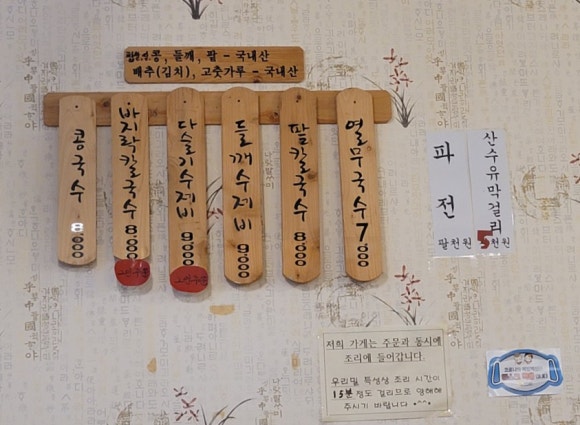 콩, 들깨, 팥 - 국내산
배추(김치), 고춧가루 - 국내산
콩국수 8,000
바지락칼국수 8,000
다슬기수제비 9,000
들깨수제비 9,000
팥칼국수 8,000
열무국수 7,000
파전
팔천원
산수유막걸리
5천원
저희 가게는 주문과 동시에
조리에 들어갑니다.
우리밀 특성상 조리 시간이
15분 정도 걸리므로 양해해
주시기 바랍니다. ^^